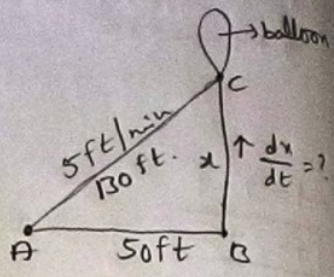 →balloon
C
5ft/min
130 ft.
x ↑ dx/dt = ?
A 50ft B